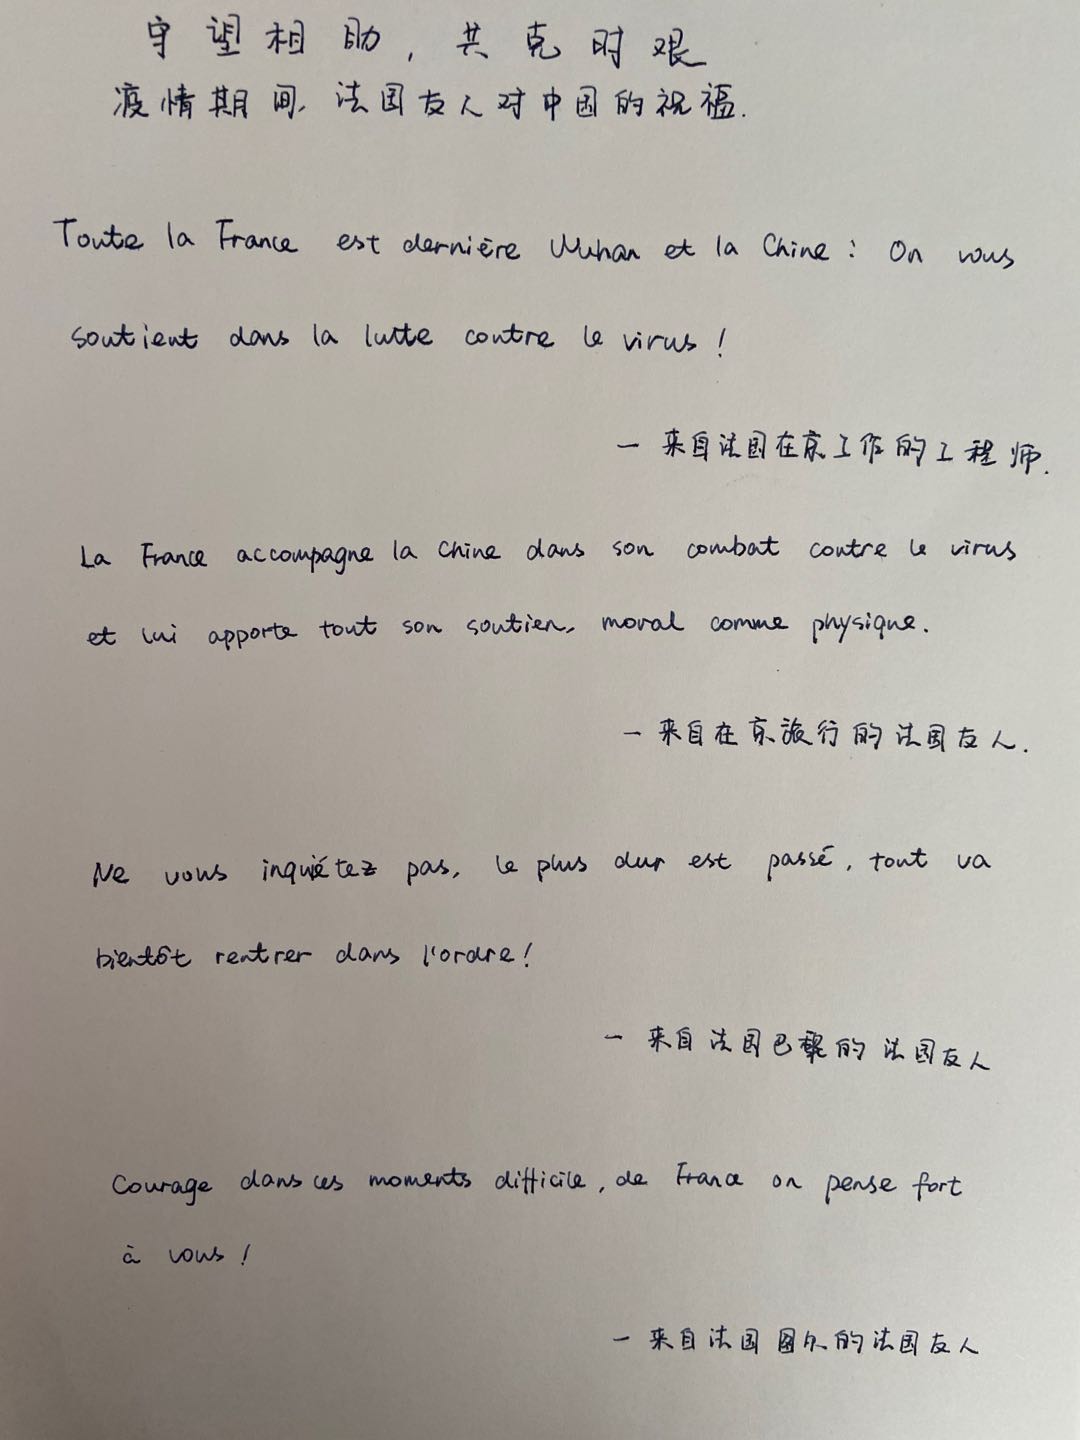 守望相助,共克时艰
疫情期间,法国友人对中国的祝福.
Toute la France est dernière Wuhan et la Chine : On vous
soutient dans la lutte contre le virus !
— 来自法国在京工作的工程师.
La France accompagne la Chine dans son combat contre le virus
et lui apporte tout son soutien, moral comme physique.
— 来自在京旅行的法国友人.
Ne vous inquiétez pas, le plus dur est passé, tout va
bientôt rentrer dans l'ordre !
— 来自法国巴黎的法国友人
Courage dans ces moments difficile, de France on pense fort
à vous !
— 来自法国图尔的法国友人